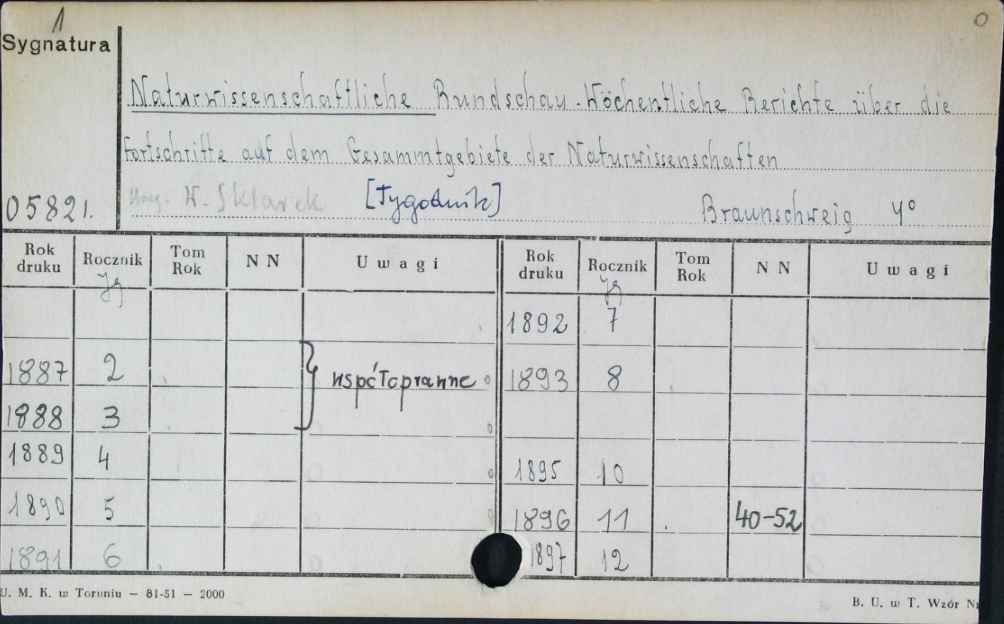 1
0
Sygnatura
Naturwissenschaftliche Rundschau. Wöchentliche Berichte über die
Fortschritte auf dem Gesammtgebiete der Naturwissenschaften
W. Sklarek [Tygodnik] Braunschweig 4°
05821.
Rok druku Rocznik Jg Tom Rok N N Uwagi Rok druku Rocznik Jg Tom Rok N N Uwagi
1892 7
1887 2 współoprawne 1893 8
1888 3
1889 4 1895 10
1890 5 1896 11 40-52
1891 6 1897 12
U. M. K. w Toruniu — 81-51 — 2000
B. U. w T. Wzór